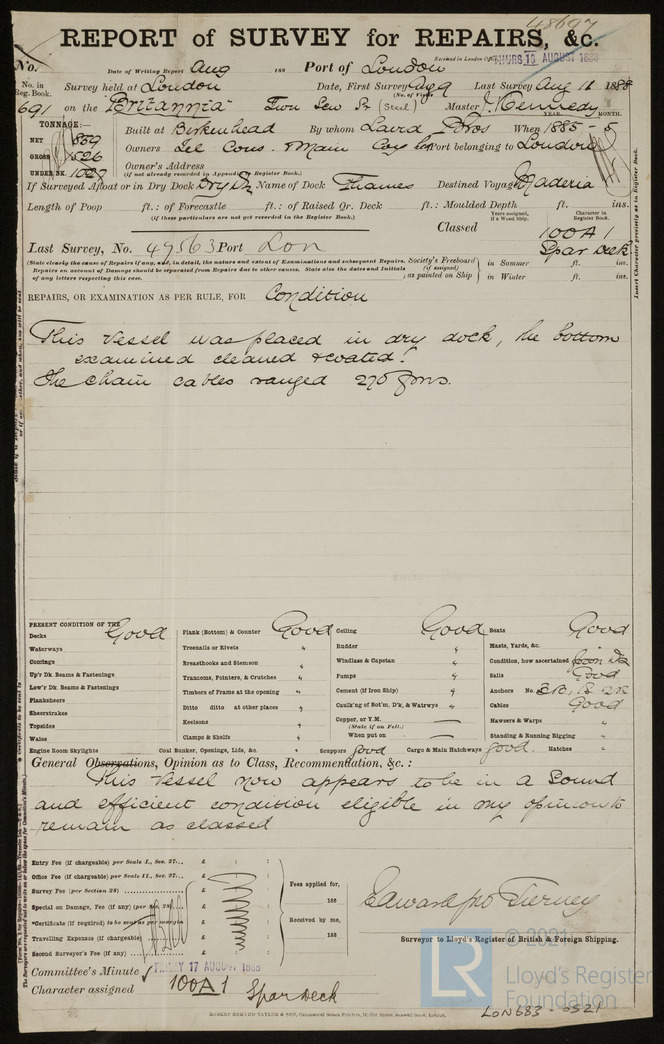 48697
REPORT of SURVEY for REPAIRS, &c.
Received in London Office THURS 16 AUGUST 1888
No. Date of Writing Report Aug 188 Port of London
No. in Reg. Book. Survey held at London Date, First Survey Aug 9 Last Survey Aug 11 1888
(No. of Visits
691 on the Britannia Twn Scw Sr (Steel) Master J. Kennedy
TONNAGE:— YEAR. MONTH.
NET 859 Built at Birkenhead By whom Laird Bros When 1885 - 5
GROSS 1526 Owners Tel Cons. & Main Coy Port belonging to London
UNDER DK. 1027 Owner's Address
(if not already recorded in Appendix to Register Book.)
If Surveyed Afloat or in Dry Dock Dry Dk Name of Dock Thames Destined Voyage Maderia
Length of Poop ft.: of Forecastle ft.: of Raised Qr. Deck ft.: Moulded Depth ft. ins.
(if these particulars are not yet recorded in the Register Book.)
Years assigned, if a Wood Ship. Character in Register Book.
Classed 100A1
Last Survey, No. 47563 Port Lon Spar Deck
(State clearly the cause of Repairs if any, and, in detail, the nature and extent of Examinations and subsequent Repairs.
Repairs on account of Damage should be separated from Repairs due to other causes. State also the dates and Initials of any letters respecting this case.
Society's Freeboard (if assigned) as painted on Ship in Summer ft. ins.
in Winter ft. ins.
Insert Character precisely as in Register Book.
REPAIRS, OR EXAMINATION AS PER RULE, FOR Condition
This Vessel was placed in dry dock, the bottom
examined cleaned & coated.
The chain cables ranged 270 fms.
PRESENT CONDITION OF THE
Decks Good Plank (Bottom) & Counter Good Ceiling Good Boats Good
Waterways Treenails or Rivets " Rudder " Masts, Yards, &c. "
Comings Breasthooks and Stemson " Windlass & Capstan " Condition, how ascertained from Dk
Up'r Dk. Beams & Fastenings Transoms, Pointers, & Crutches " Pumps " Sails Good
Low'r Dk. Beams & Fastenings Timbers of Frame at the opening " Cement (if Iron Ship) " Anchors No.
Planksheers Ditto ditto at other places " Caulk'ng of Bot'm, D'k, & Watrwys " Cables Good
Sheerstrakes Keelsons " Copper, or Y.M. — Hawsers & Warps "
(State if on Felt.)
Topsides Clamps & Shelfs " When put on — Standing & Running Rigging "
Wales
Engine Room Skylights " Coal Bunker, Openings, Lids, &c. " Scuppers good Cargo & Main Hatchways good. Hatches "
General Observations, Opinion as to Class, Recommendation, &c.:
This Vessel now appears to be in a Sound
and efficient condition eligible in my opinion to
remain as classed
Entry Fee (if chargeable) per Scale I., Sec. 27... £ : :
Office Fee (if chargeable) per Scale II., Sec. 27... £
Survey Fee (per Section 28) £
Fees applied for, 188
Special or Damage, Fee (if any) (per Sec. 28) £
*Certificate (if required) to be sent as per margin £
Received by me, 188
Travelling Expenses (if chargeable) £
Second Surveyor's Fee (if any) £
Edward Jno Tierney
Surveyor to Lloyd's Register of British & Foreign Shipping.
Committee's Minute FRIDAY 17 AUGUST 1888
Character assigned 100A1
Spar deck
ROBERT EDMUND TAYLOR & SON,
LR
© 2021
Lloyd's Register
Foundation
LON683-0521